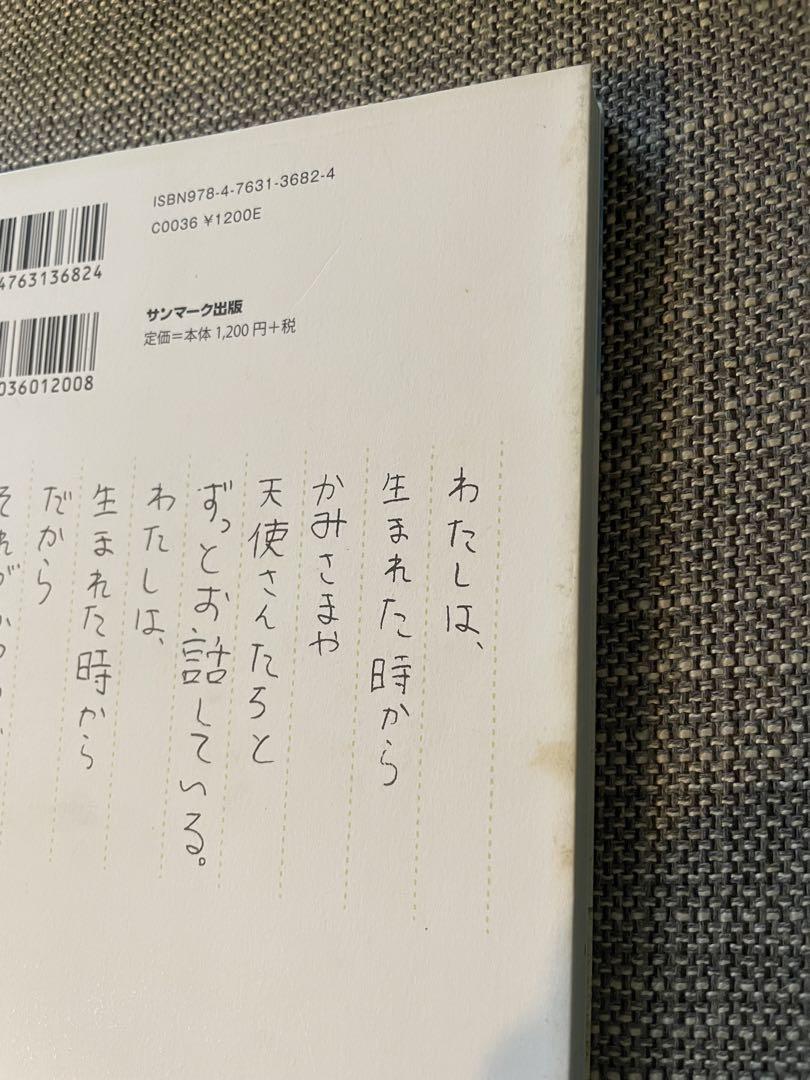 ISBN978-4-7631-3682-4
C0036 ¥1200E
4763136824
サンマーク出版
定価=本体1,200円+税
036012008
わたしは、
生まれた時から
かみさまや
天使さんたちと
ずっとお話している。
わたしは、
生まれた時から
だから
それが